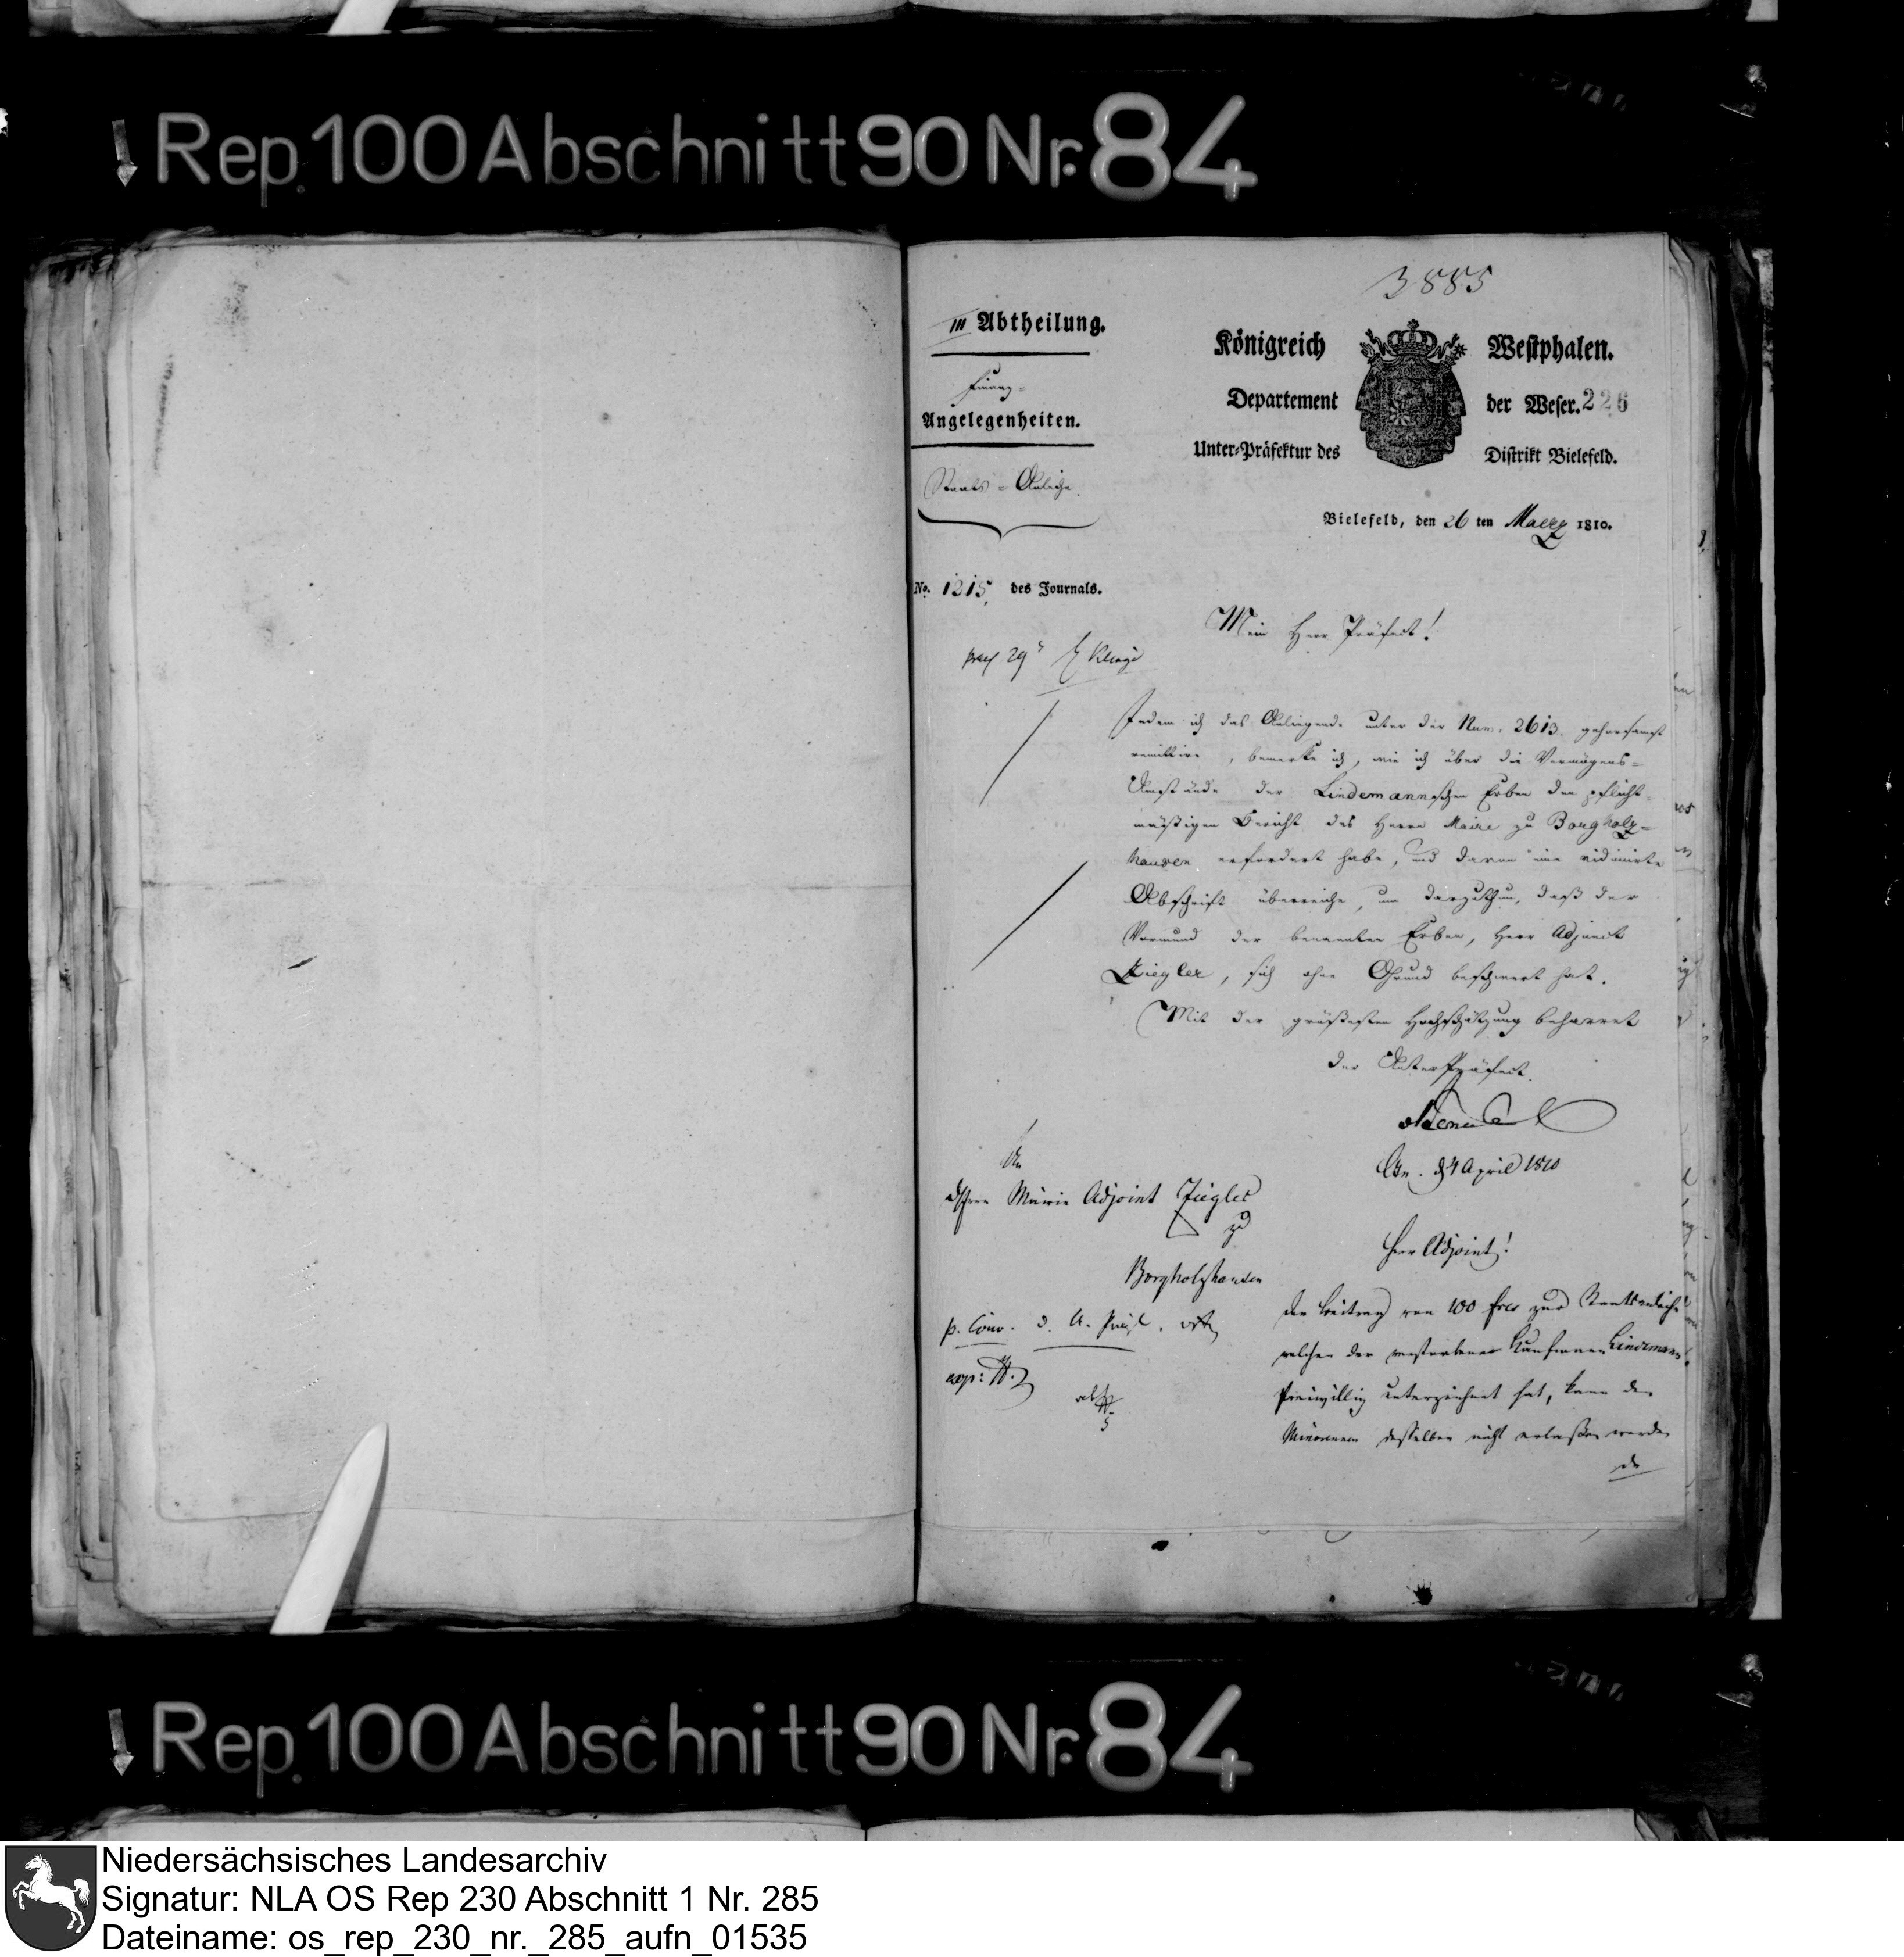 Rep. 100 Abschnitt 90 Nr. 84
3885
III Abtheilung.
Finanz-
Angelegenheiten.
Staats-Anleihe.
Königreich Westphalen.
Departement der Weser. 226
Unter-Präfektur des Distrikt Bielefeld.
Bielefeld, den 26 ten Maerz 1810.
No. 1215. des Journals.
Mein Herr Präfect!
Indem ich das Anliegende unter der Num. 2613. gehorsamst
remittire, bemerke ich, wie ich über die Vermögens-
Umstände der Lindemannschen Erben den pflicht-
mäßigen Bericht des Herrn Maire zu Borgholz-
hausen erfordert habe, und davon eine vidimirte
Abschrift überreiche, um darzuthun, daß der
Vormund der benannten Erben, Herr Adjunct
Ziegler, sich ohne Grund beschwert hat.
Mit der größesten Hochschätzung beharret
der UnterPräfect.
d 4 April 1810
An
Herrn Mairie Adjoint Ziegler
zu
Borgholzhausen
Herr Adjoint!
Den Beitrag von 100 frcs zur Staatsanleihe
welchen der verstorbene Kaufmann Lindemann
freiwillig unterzeichnet hat, kann den
Minorennen desselben nicht erlaßen werden
Rep. 100 Abschnitt 90 Nr. 84
Niedersächsisches Landesarchiv
Signatur: NLA OS Rep 230 Abschnitt 1 Nr. 285
Dateiname: os_rep_230_nr._285_aufn_01535